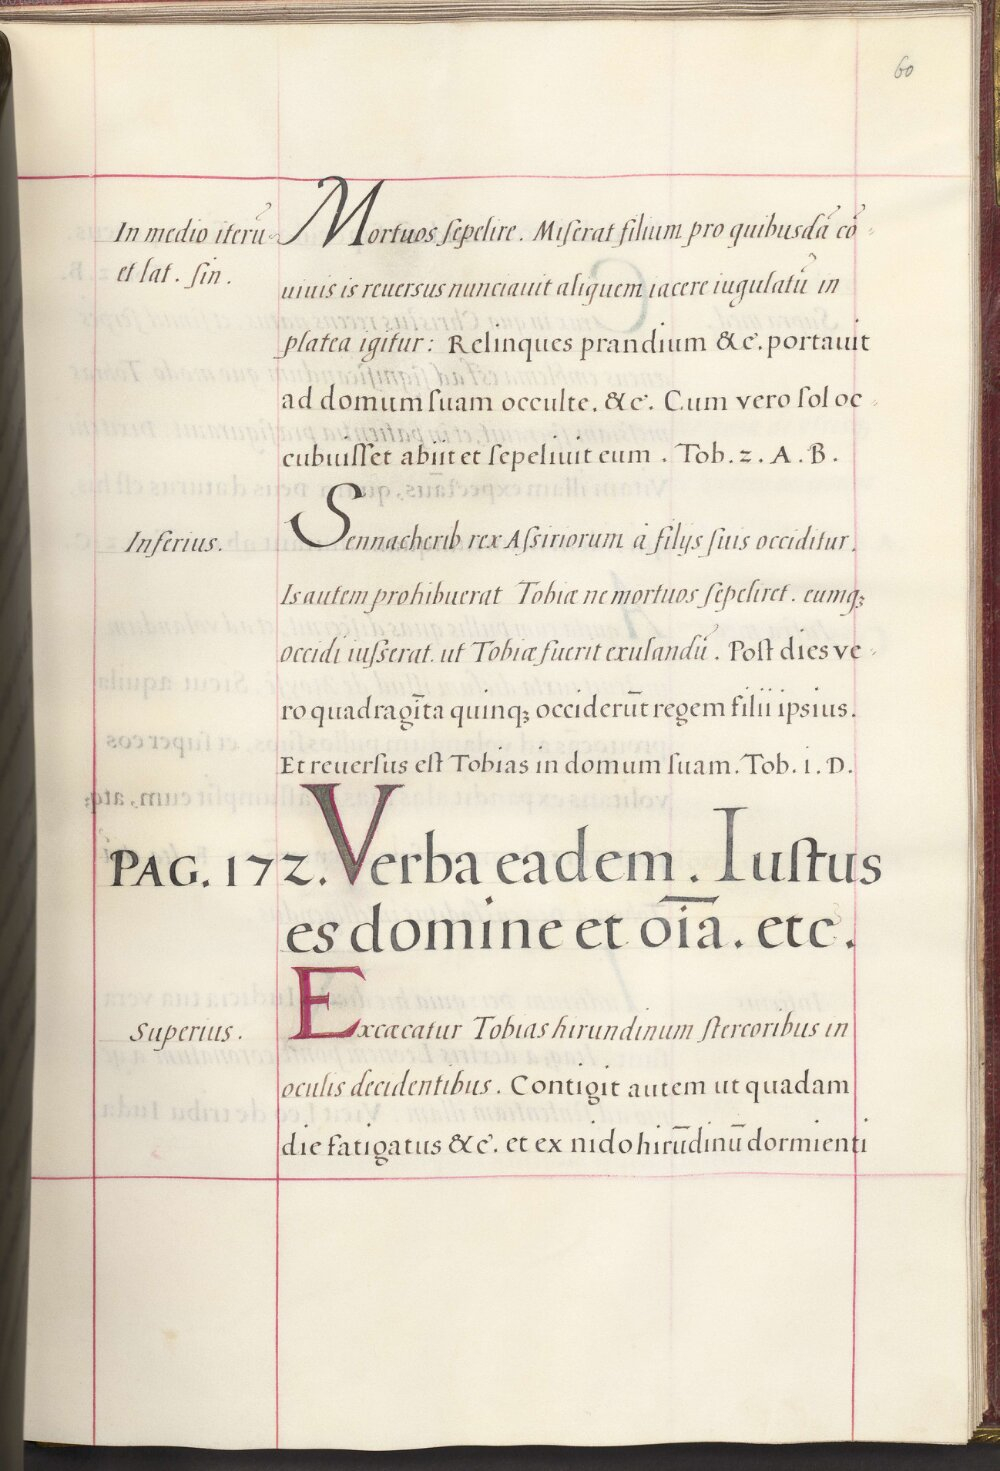 60
In medio iterū
et lat. sin.
Mortuos sepelire. Miserat filium pro quibusdā cō-
uiuis is reuersus nunciauit aliquem iacere iugulatū in
platea igitur: Relinques prandium &c. portauit
ad domum suam occulte. &c. Cum vero sol oc-
cubuisset abiit et sepeliuit eum. Tob. 2. A. B.
Inferius.
Sennacherib rex Assiriorum à filijs suis occiditur.
Is autem prohibuerat Tobiæ ne mortuos sepeliret. eumqꝫ
occidi iusserat. ut Tobiæ fuerit exulandū. Post dies ve-
ro quadragīta quinqꝫ occiderūt regem filii ipsius.
Et reuersus est Tobias in domum suam. Tob. 1. D.
PAG. 172. Verba eadem. Iustus
es domine et oīa. etc.
Superius.
Excæcatur Tobias hirundinum stercoribus in
oculis decidentibus. Contigit autem ut quadam
die fatigatus &c. et ex nido hirūdinū dormienti